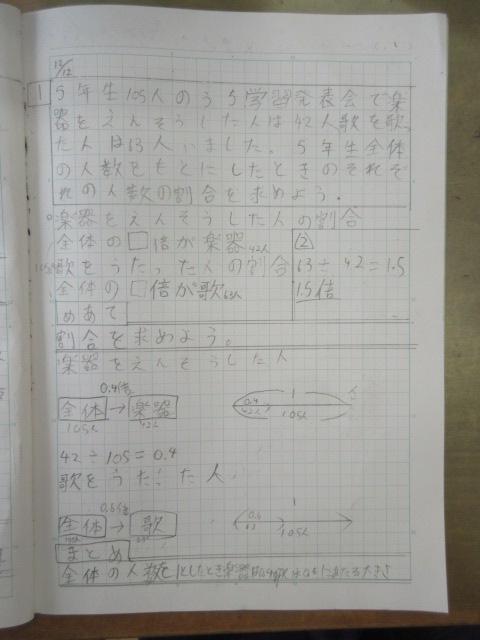 12/12
1
5年生105人のうち学習発表会で楽
器をえんそうした人は42人歌を歌っ
た人は63人いました。5年生全体
の人数をもとにしたときのそれぞ
れの人数の割合を求めよう。
楽器をえんそうした人の割合
全体の□倍が楽器42人
歌をうたった人の割合
全体の□倍が歌63人
②
63÷42=1.5
1.5倍
めあて
割合を求めよう。
楽器をえんそうした人
0.4倍
全体→楽器
105人 42人
1
0.4
42人
105人
42÷105=0.4
歌をうたった人
0.6倍
全体→歌
1
0.6
63
105人
まとめ
全体の人数を1としたとき楽器は0.4 にあたる大きさ